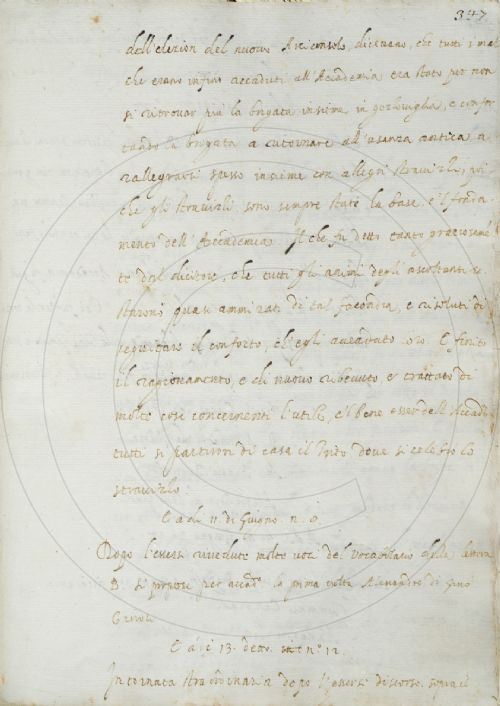 347
dell'elezion del nuovo Arciconsolo, dicevano, che tutti i mal
che erano infino accaduti all'Accademia era stato per non
si ritrovar più la brigata insieme in gozzoviglia, e confor
tando la brigata a ritornare all'usanza antica a
rallegrarsi spesso insieme con allegri stravizzi, poi
che gli stravizzi sono sempre stati la base, e 'l fonda
mento dell'Accademia. Il che fu detto tanto graziosame
te dal dicitore, che tutti gli animi degli ascoltanti re
starono quasi ammirati di tal facondia, e risoluti di
seguitare il conforto, ch'egli avea dato loro. E finito
il ragionamento, e di nuovo ribevuto e trattato di
molte cose concernenti l'utile, e 'l bene esser dell'Accade
tutti si partiron di casa il dove si celebrò lo
stravizzo.
E a dì 11. di Giugno. n. 
Dopo l'essersi rivedute molte voci del Vocabolario della lettera
D. si propose per accad. la prima volta Alessandro di Gino
Ginori
E a dì 13. detto n.° 12.
In tornata straordinaria dopo l'essersi discorso sopra il